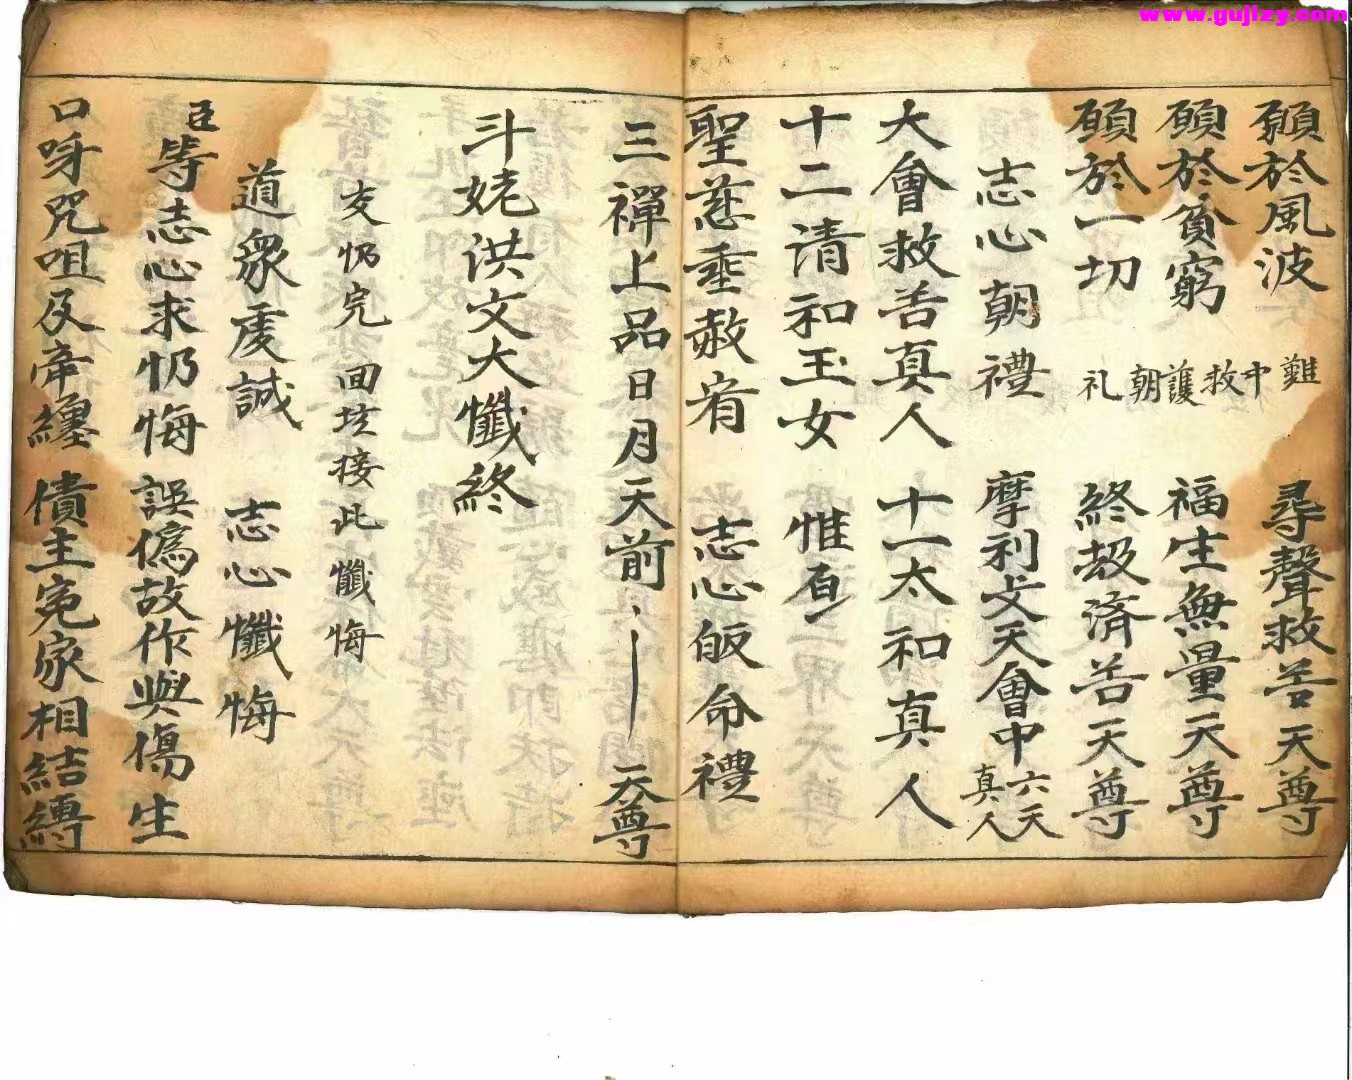 www.gujizy.com
願於風波 尋聲救苦天尊
願於貧窮 福生無量天尊
願於一切 終劫済苦天尊
難中救護朝礼
志心朝禮 摩利攴天會中六天真人
大會救苦真人 十一太和真人
十二清和玉女 惟願
聖慈垂赦宥 志心皈命禮
三禪上品日月天前 天尊
斗姥洪文大懺終
完回坛接此懺悔
道眾虔誠 志心懺悔
臣等志心求忏悔 誤偽故作與傷生
口呀咒咀及牽纏 債主冤家相結縛